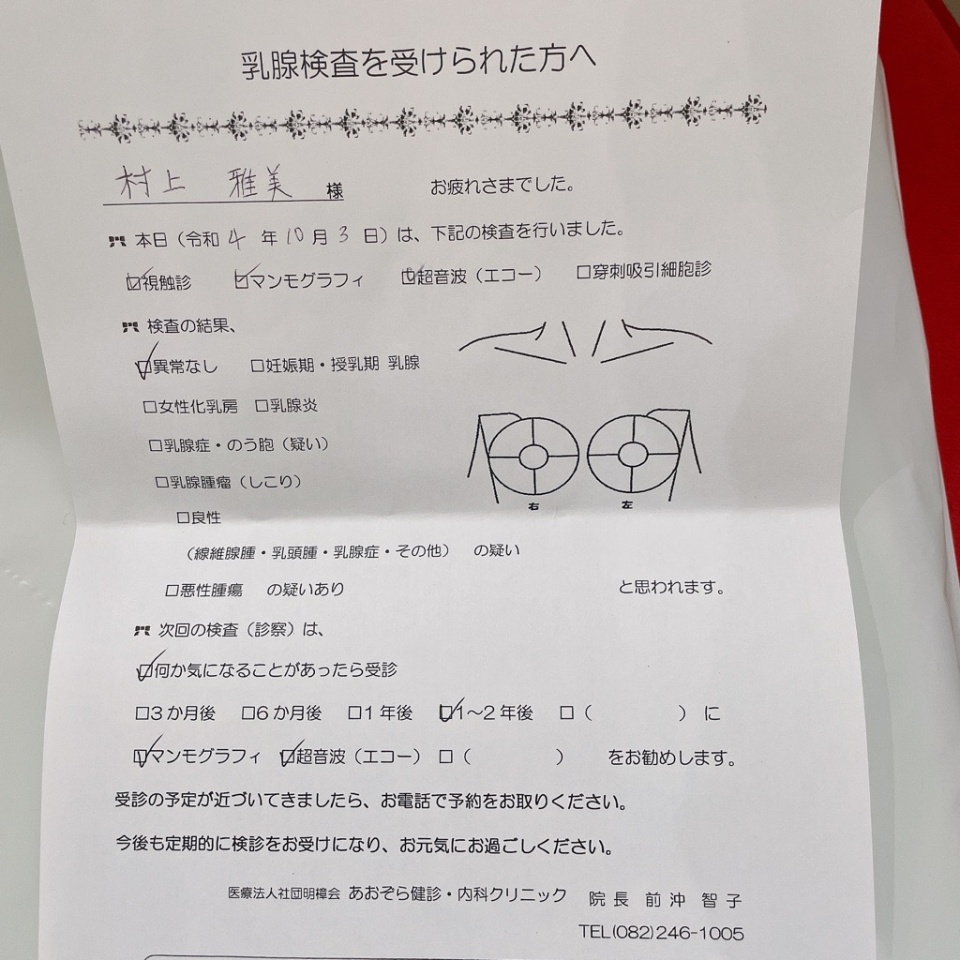 乳腺検査を受けられた方へ
村上 雅美 様 お疲れさまでした。
本日（令和 4 年 10 月 3 日）は、下記の検査を行いました。
☑視触診 ☑マンモグラフィ ☑超音波（エコー） □穿刺吸引細胞診
検査の結果、
☑異常なし □妊娠期・授乳期 乳腺
□女性化乳房 □乳腺炎
□乳腺症・のう胞（疑い）
□乳腺腫瘤（しこり）
□良性
（線維腺腫・乳頭腫・乳腺症・その他） の疑い
□悪性腫瘍 の疑いあり と思われます。
右 左
次回の検査（診察）は、
☑何か気になることがあったら受診
□3か月後 □6か月後 □1年後 ☑1～2年後 □（ ）に
☑マンモグラフィ ☑超音波（エコー） □（ ） をお勧めします。
受診の予定が近づいてきましたら、お電話で予約をお取りください。
今後も定期的に検診をお受けになり、お元気にお過ごしください。
医療法人社団明樟会 あおぞら健診・内科クリニック 院長 前沖 智子
TEL(082)246-1005